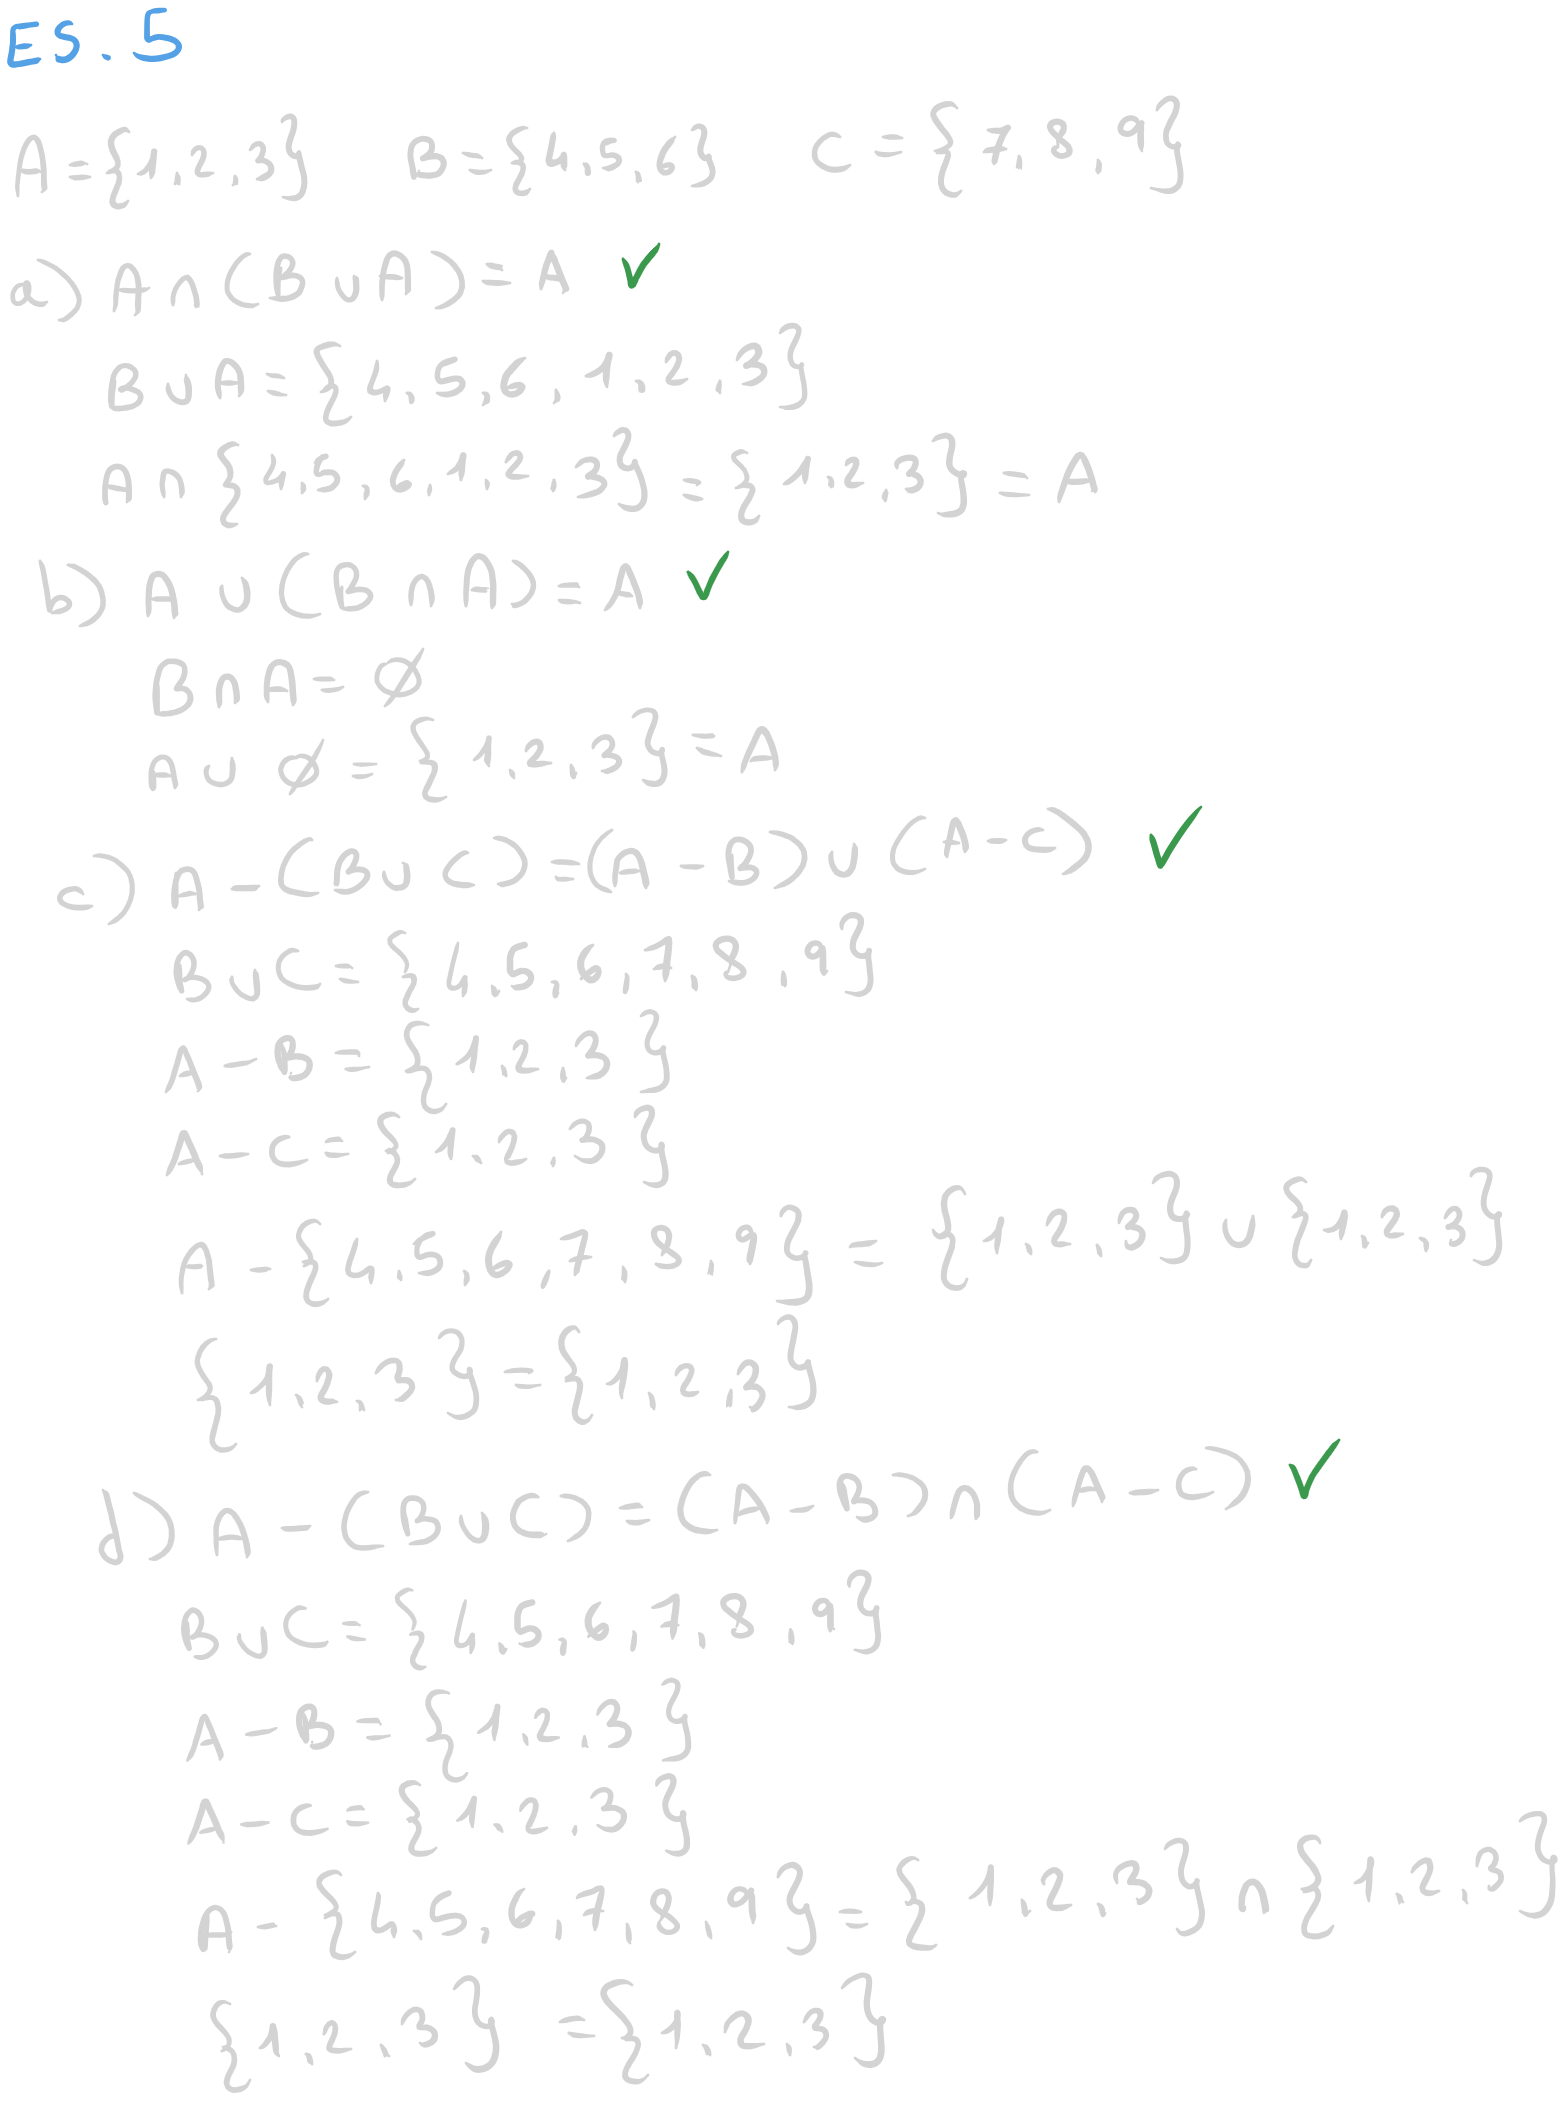 ES. 5
A = {1, 2, 3} B = {4, 5, 6} C = {7, 8, 9}
a) A ∩ (B ∪ A) = A ✓
B ∪ A = {4, 5, 6, 1, 2, 3}
A ∩ {4, 5, 6, 1, 2, 3} = {1, 2, 3} = A
b) A ∪ (B ∩ A) = A ✓
B ∩ A = ∅
A ∪ ∅ = {1, 2, 3} = A
c) A - (B ∪ C) = (A - B) ∪ (A - C) ✓
B ∪ C = {4, 5, 6, 7, 8, 9}
A - B = {1, 2, 3}
A - C = {1, 2, 3}
A - {4, 5, 6, 7, 8, 9} = {1, 2, 3} ∪ {1, 2, 3}
{1, 2, 3} = {1, 2, 3}
d) A - (B ∪ C) = (A - B) ∩ (A - C) ✓
B ∪ C = {4, 5, 6, 7, 8, 9}
A - B = {1, 2, 3}
A - C = {1, 2, 3}
A - {4, 5, 6, 7, 8, 9} = {1, 2, 3} ∩ {1, 2, 3}
{1, 2, 3} = {1, 2, 3}